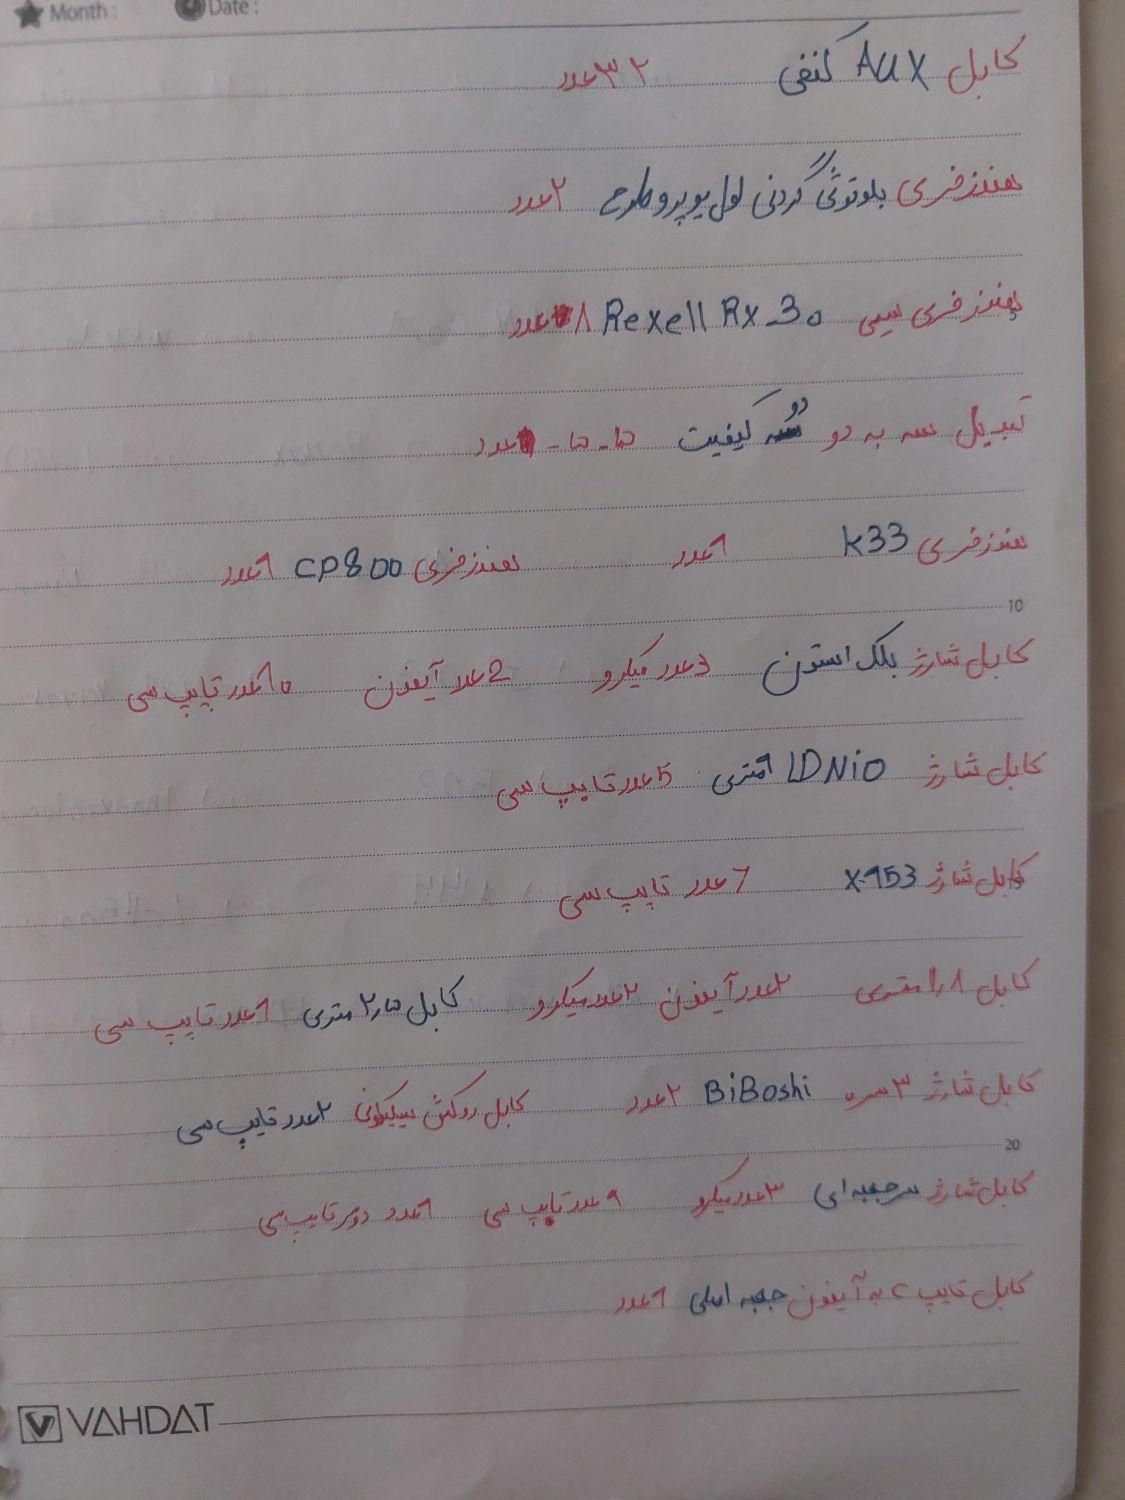 Month : Date :
کابل AUX کنفی ۳۲ عدد
هندزفری بلوتوثی گردنی لول یوپرو طرح ۲عدد
هندزفری سیمی Rexell Rx-30 ۸ عدد
تبدیل سه به دو دو کیفیت ۵ - ۵ - عدد
هندزفری k33 ۱عدد هندزفری CP800 ۱عدد
10
کابل شارژ بلک استون ۳عدد میکرو 2عدد آیفون ۱۰عدد تایپ سی
کابل شارژ LDNiO ۱متری 5عدد تایپ سی
کابل شارژ X-153 ۶عدد تایپ سی
کابل ۱٫۸ متری ۲عدد آیفون ۲عدد میکرو کابل ۲٫۵ متری ۱عدد تایپ سی
کابل شارژ ۳سره BiBoshi ۲عدد کابل روکش سیلیکونی ۲عدد تایپ سی
20
کابل شارژ سرجعبه ای ۳عدد میکرو ۹عدد تایپ سی ۱عدد دوسر تایپ سی
کابل تایپ C به آیفون جعبه اصلی ۱عدد
VAHDAT